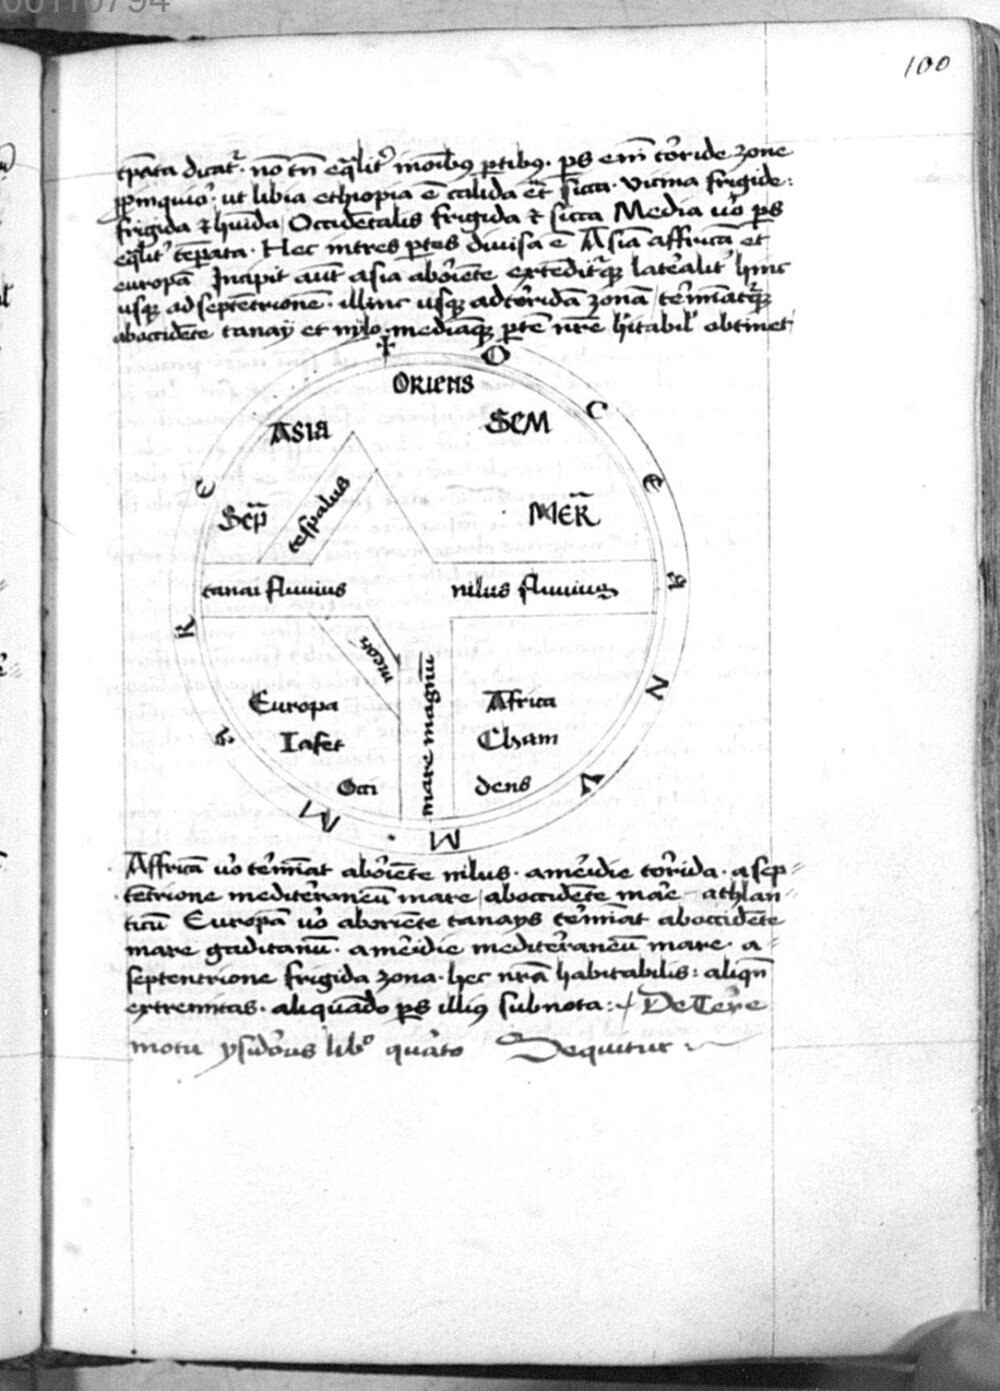 00110794
100
tp̄ata dicat᷑. nō tn̄ eq̄lit᷑ in oībꝰ ptibꝰ. ps em̄ torride zone
ppinquior. ut libia ethiopia ē calida et sicca. vicina frigide:
frigida ⁊ huīda Occidētalis frigida ⁊ sicca Media ūo ps
eq̄lit᷑ tēpata. Hec in tres ptes diuisa ē Āsiā affricā et
europā Incipit aut̄ asia ab oriēte extēditqꝫ lat᷑alit᷑ hinc
usqꝫ ad septētrione. illinc usqꝫ ad torridā zonā t᷑minatqꝫ
ab occidēte tanay et nylo. mediāqꝫ ptē nr̄e hītabil᷑ obtinet
ORIENS
ASIA
SEM
Sep̄
tespalus
MER̄
tanai fluuius
nilus fluuius
meoti
mare magnū
Europa
Āfrica
Iafet
Cham
Occi
dens
O C E A N
M A R E
Āffricā ūo t᷑minat ab oriēte nilus. a meridie torrida. a sep=
tētrione mediterraneū mare ab occidēte mare athlan
ticū Europā ūo ab oriēte tanays t᷑minat ab occidēte
mare gaditanū. a meridie mediterraneū mare. a=
septentrione frigida zona. hec nr̄a habitabilis: aliqn̄
extremitas. aliquādo ps illiꝰ subnota: De Terre
motu ysidorus libº quarto Sequitur